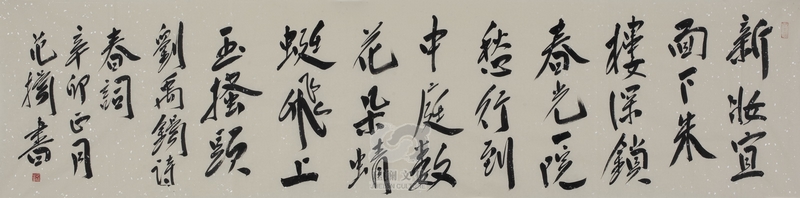 新妝宜
面下朱
樓深鎖
春光一院
愁行到
中庭数
花朵蜻
蜓飛上
玉搔頭
劉禹錫诗
春詞
辛卯正月
范
書